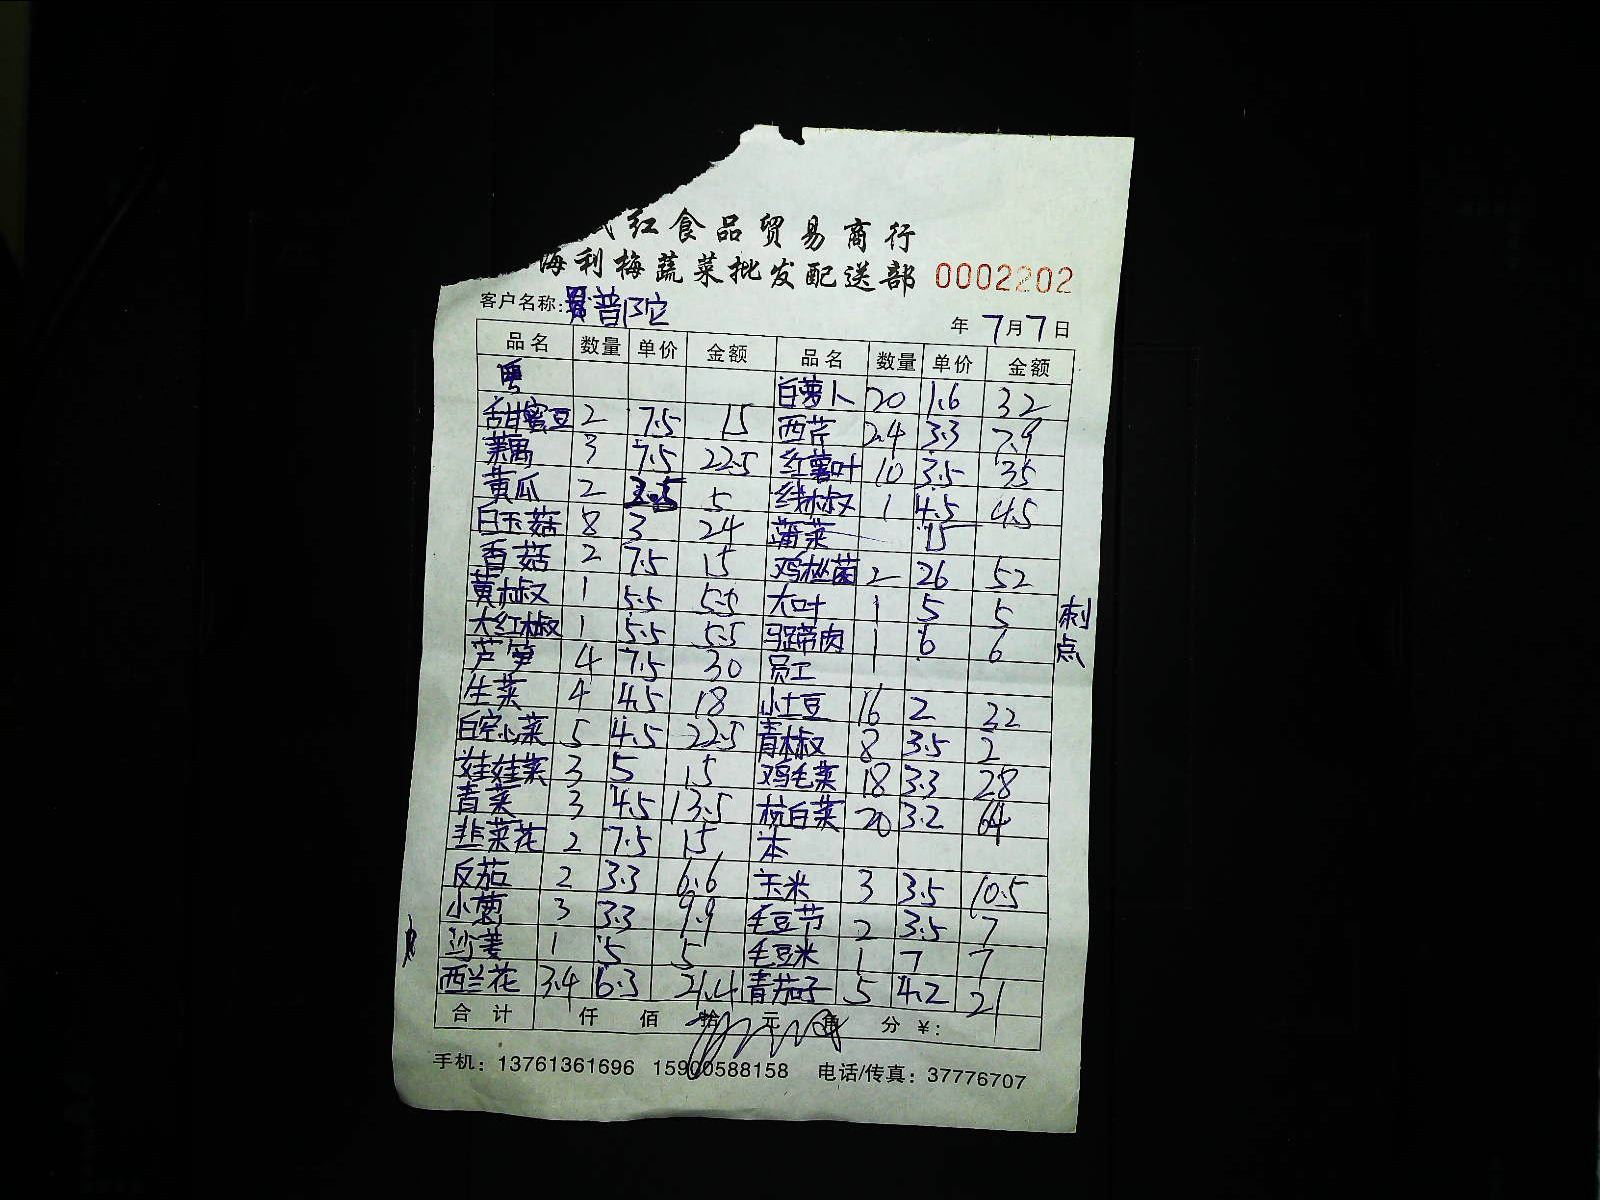 红食品贸易商行
海利梅蔬菜批发配送部 0002202
客户名称: 普陀
年 7月7日
品名 数量 单价 金额 品名 数量 单价 金额
白萝卜 20 1.6 32
甜蜜豆 2 7.5 15 西芹 2.4 3.3 7.9
藕 3 7.5 22.5 红薯叶 10 3.5 35
黄瓜 2 2.5 5 线椒 1 4.5 4.5
白玉菇 8 3 24 蒲菜 15
香菇 2 7.5 15 鸡枞菌 2 26 52
黄椒 1 5.5 5.5 大叶 1 5 5 刺
大红椒 1 5.5 5.5 马蹄肉 1 6 6 点
芦笋 4 7.5 30 员工 1
生菜 4 4.5 18 小土豆 16 2 32
白空心菜 5 4.5 22.5 青椒 8 3.5 2
娃娃菜 3 5 15 鸡毛菜 18 3.3 28
青菜 3 4.5 13.5 杭白菜 20 3.2 64
韭菜花 2 7.5 15 本
反茄 2 3.3 6.6 玉米 3 3.5 10.5
小葱 3 3.3 9.9 毛豆节 2 3.5 7
沙姜 1 5 5 毛豆米 1 7 7
西兰花 3.4 6.3 21.4 青茄子 5 4.2 21
合计 仟 佰 拾 元 角 分 ¥:
手机: 13761361696 15900588158 电话/传真: 37776707